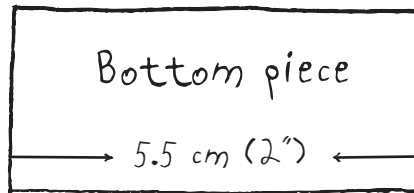 Bottom piece
5.5 cm (2")